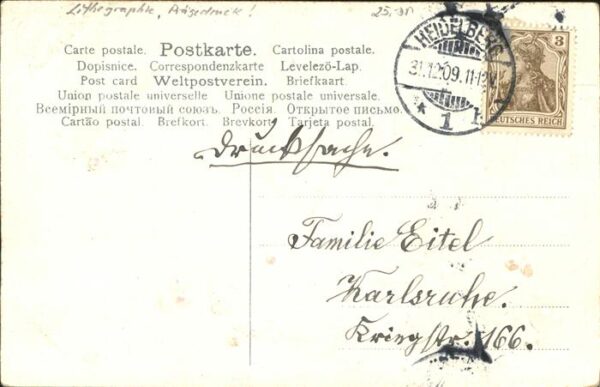 Lithographie, Prägedruck!
25,-
Carte postale. Postkarte. Cartolina postale.
Dopisnice. Correspondenzkarte Levelező-Lap.
Post card Weltpostverein. Briefkaart.
Union postale universelle Unione postale universale.
Всемірный почтовый союзъ. Россія. Открытое письмо.
Cartão postal. Brefkort. Brevkort. Tarjeta postal.
HEIDELBERG
31.12.09.11-12V.
* 1
3
DEUTSCHES REICH
Drucksache.
Familie Eitel
Karlsruhe.
Kriegstr. 166.